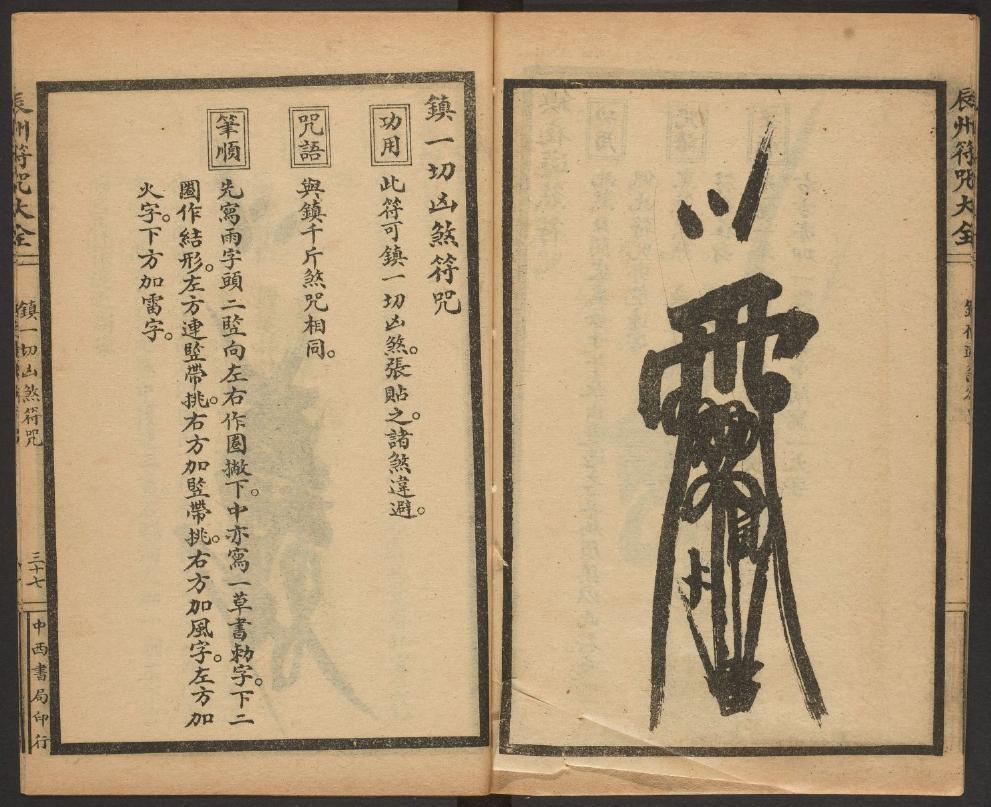 辰州符咒大全
鎮一切凶煞符咒
功用
此符可鎮一切凶煞。張貼之。諸煞違避。
咒語
與鎮千斤煞咒相同。
筆順
先寫雨字頭二竪向左右作圈撇下。中亦寫一草書勅字。下二
圈作結形。左方連竪帶挑。右方加竪帶挑。右方加風字。左方加
火字。下方加雷字。
辰州符咒大全
鎮一切凶煞符咒
三十七
中西書局印行